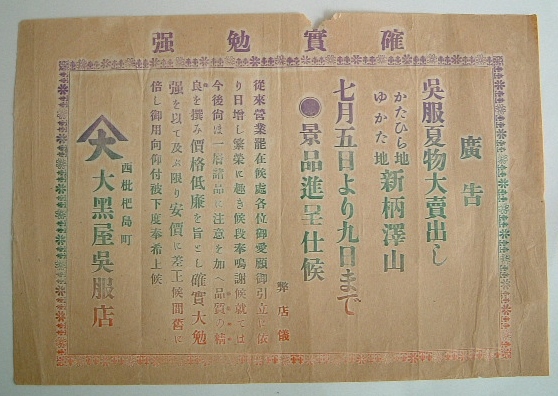 確實勉强
廣告
呉服夏物大賣出し
かたひら地
ゆかた地
新柄澤山
七月五日より九日まで
●景品進呈仕候
弊店儀
從來營業罷在候處各位御愛顧御引立に依
り日増し繁榮に趣き候段奉鳴謝候就ては
今後尚ほ一層諸品に注意を加へ品質の精
良を撰み價格低廉を旨とし確實大勉
强を以て及ぶ限り安價に差上候間舊に
倍し御用向仰付被下度奉希上候
西枇杷島町
大
大黑屋呉服店